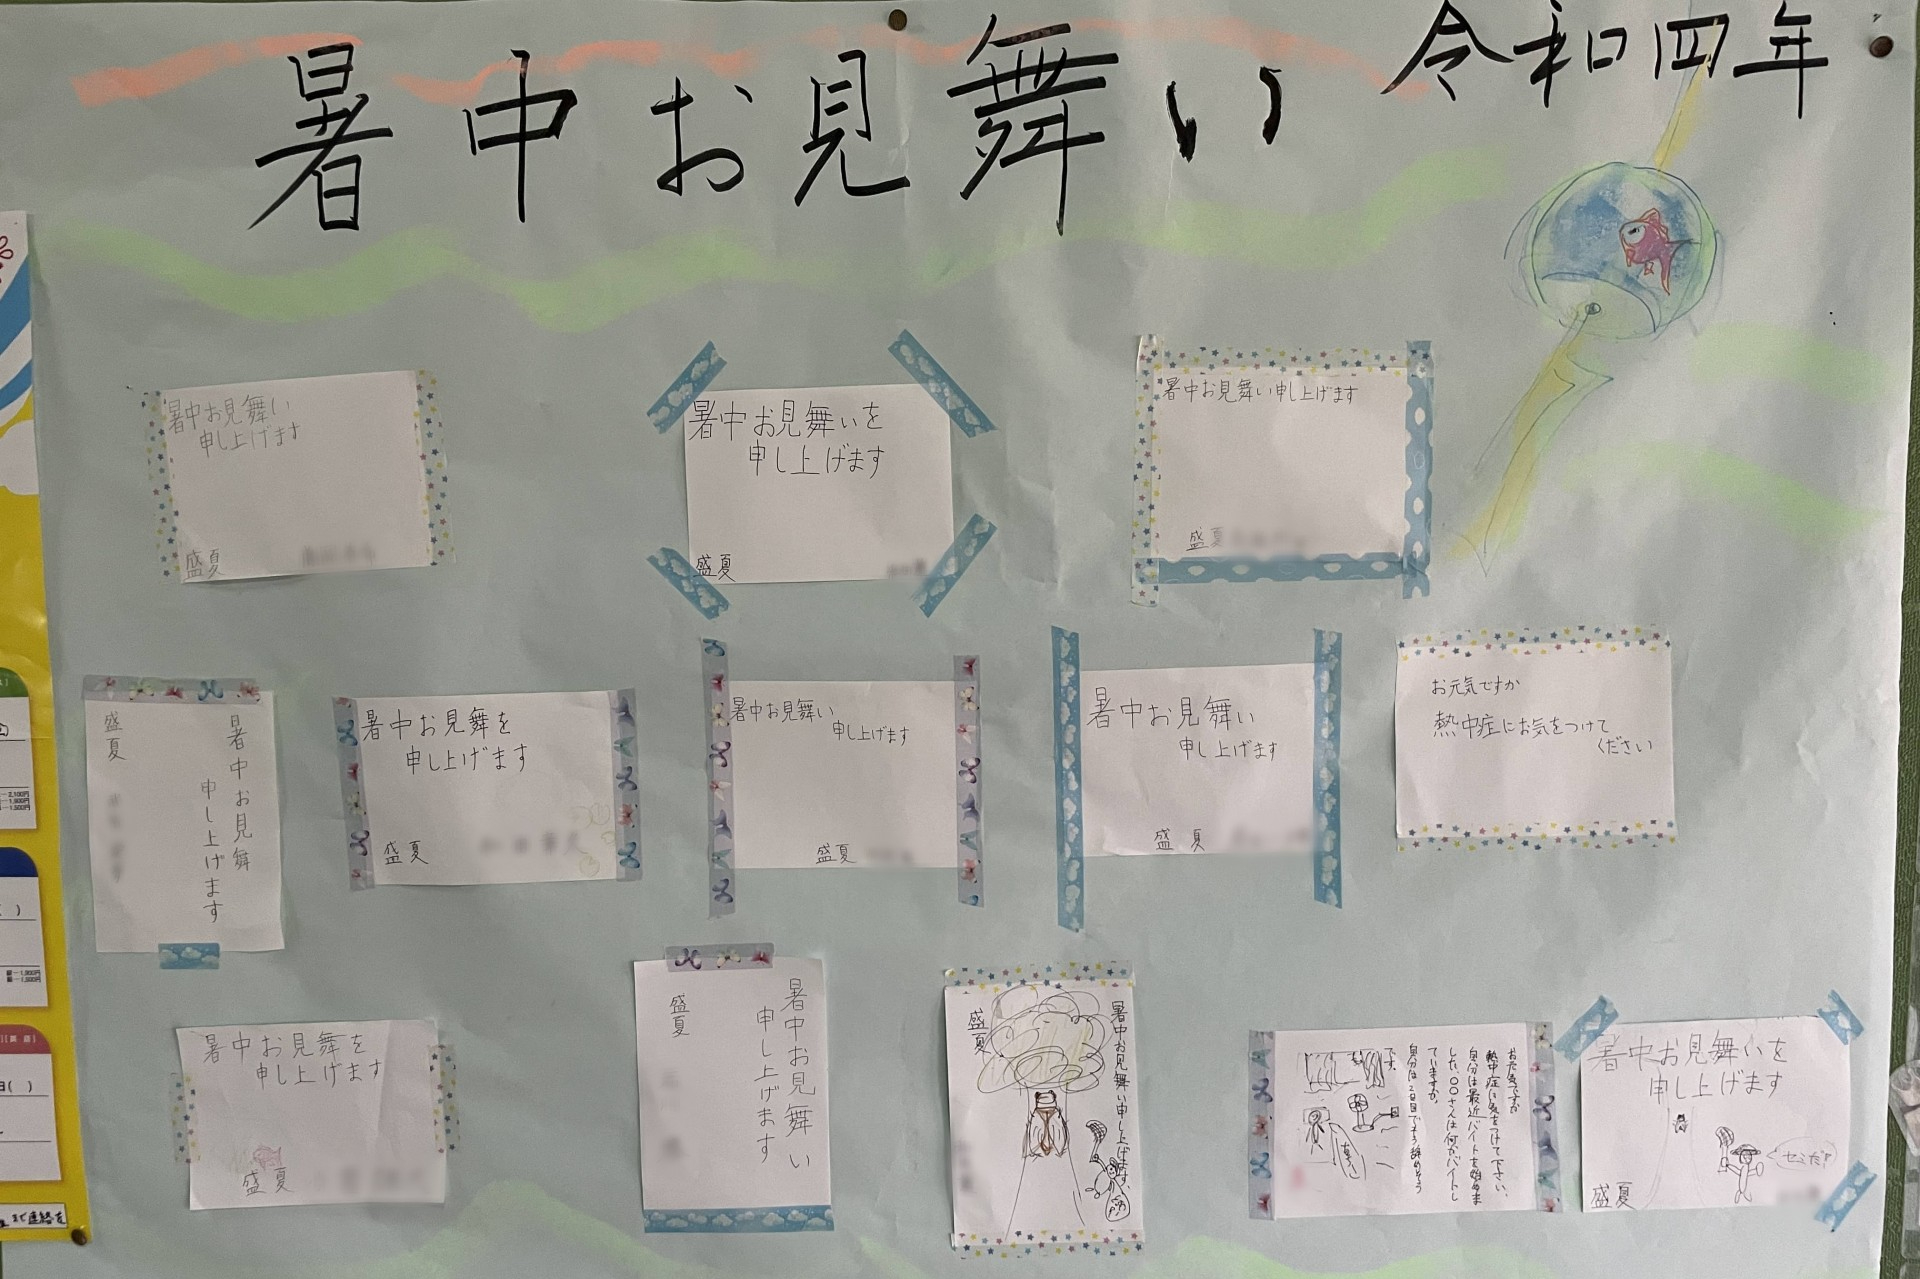 暑中お見舞い
令和四年
暑中お見舞い
申し上げます
盛夏
暑中お見舞いを
申し上げます
盛夏
暑中お見舞い申し上げます
盛夏
暑中お見舞
申し上げます
盛夏
暑中お見舞を
申し上げます
盛夏
暑中お見舞い
申し上げます
盛夏
暑中お見舞い
申し上げます
盛夏
お元気ですか
熱中症にお気をつけて
ください
暑中お見舞を
申し上げます
盛夏
暑中お見舞い
申し上げます
盛夏
暑中お見舞い申し上げます。
盛夏
お元気ですか
熱中症に気をつけて下さい。
自分は最近バイトを始めま
した。〇〇さんは何かバイトし
ていますか。
自分は2日目でもう辞めそう
です。
暑中お見舞いを
申し上げます
セミだ!!
盛夏
2,100円
1,900円
1,500円
まで連絡を